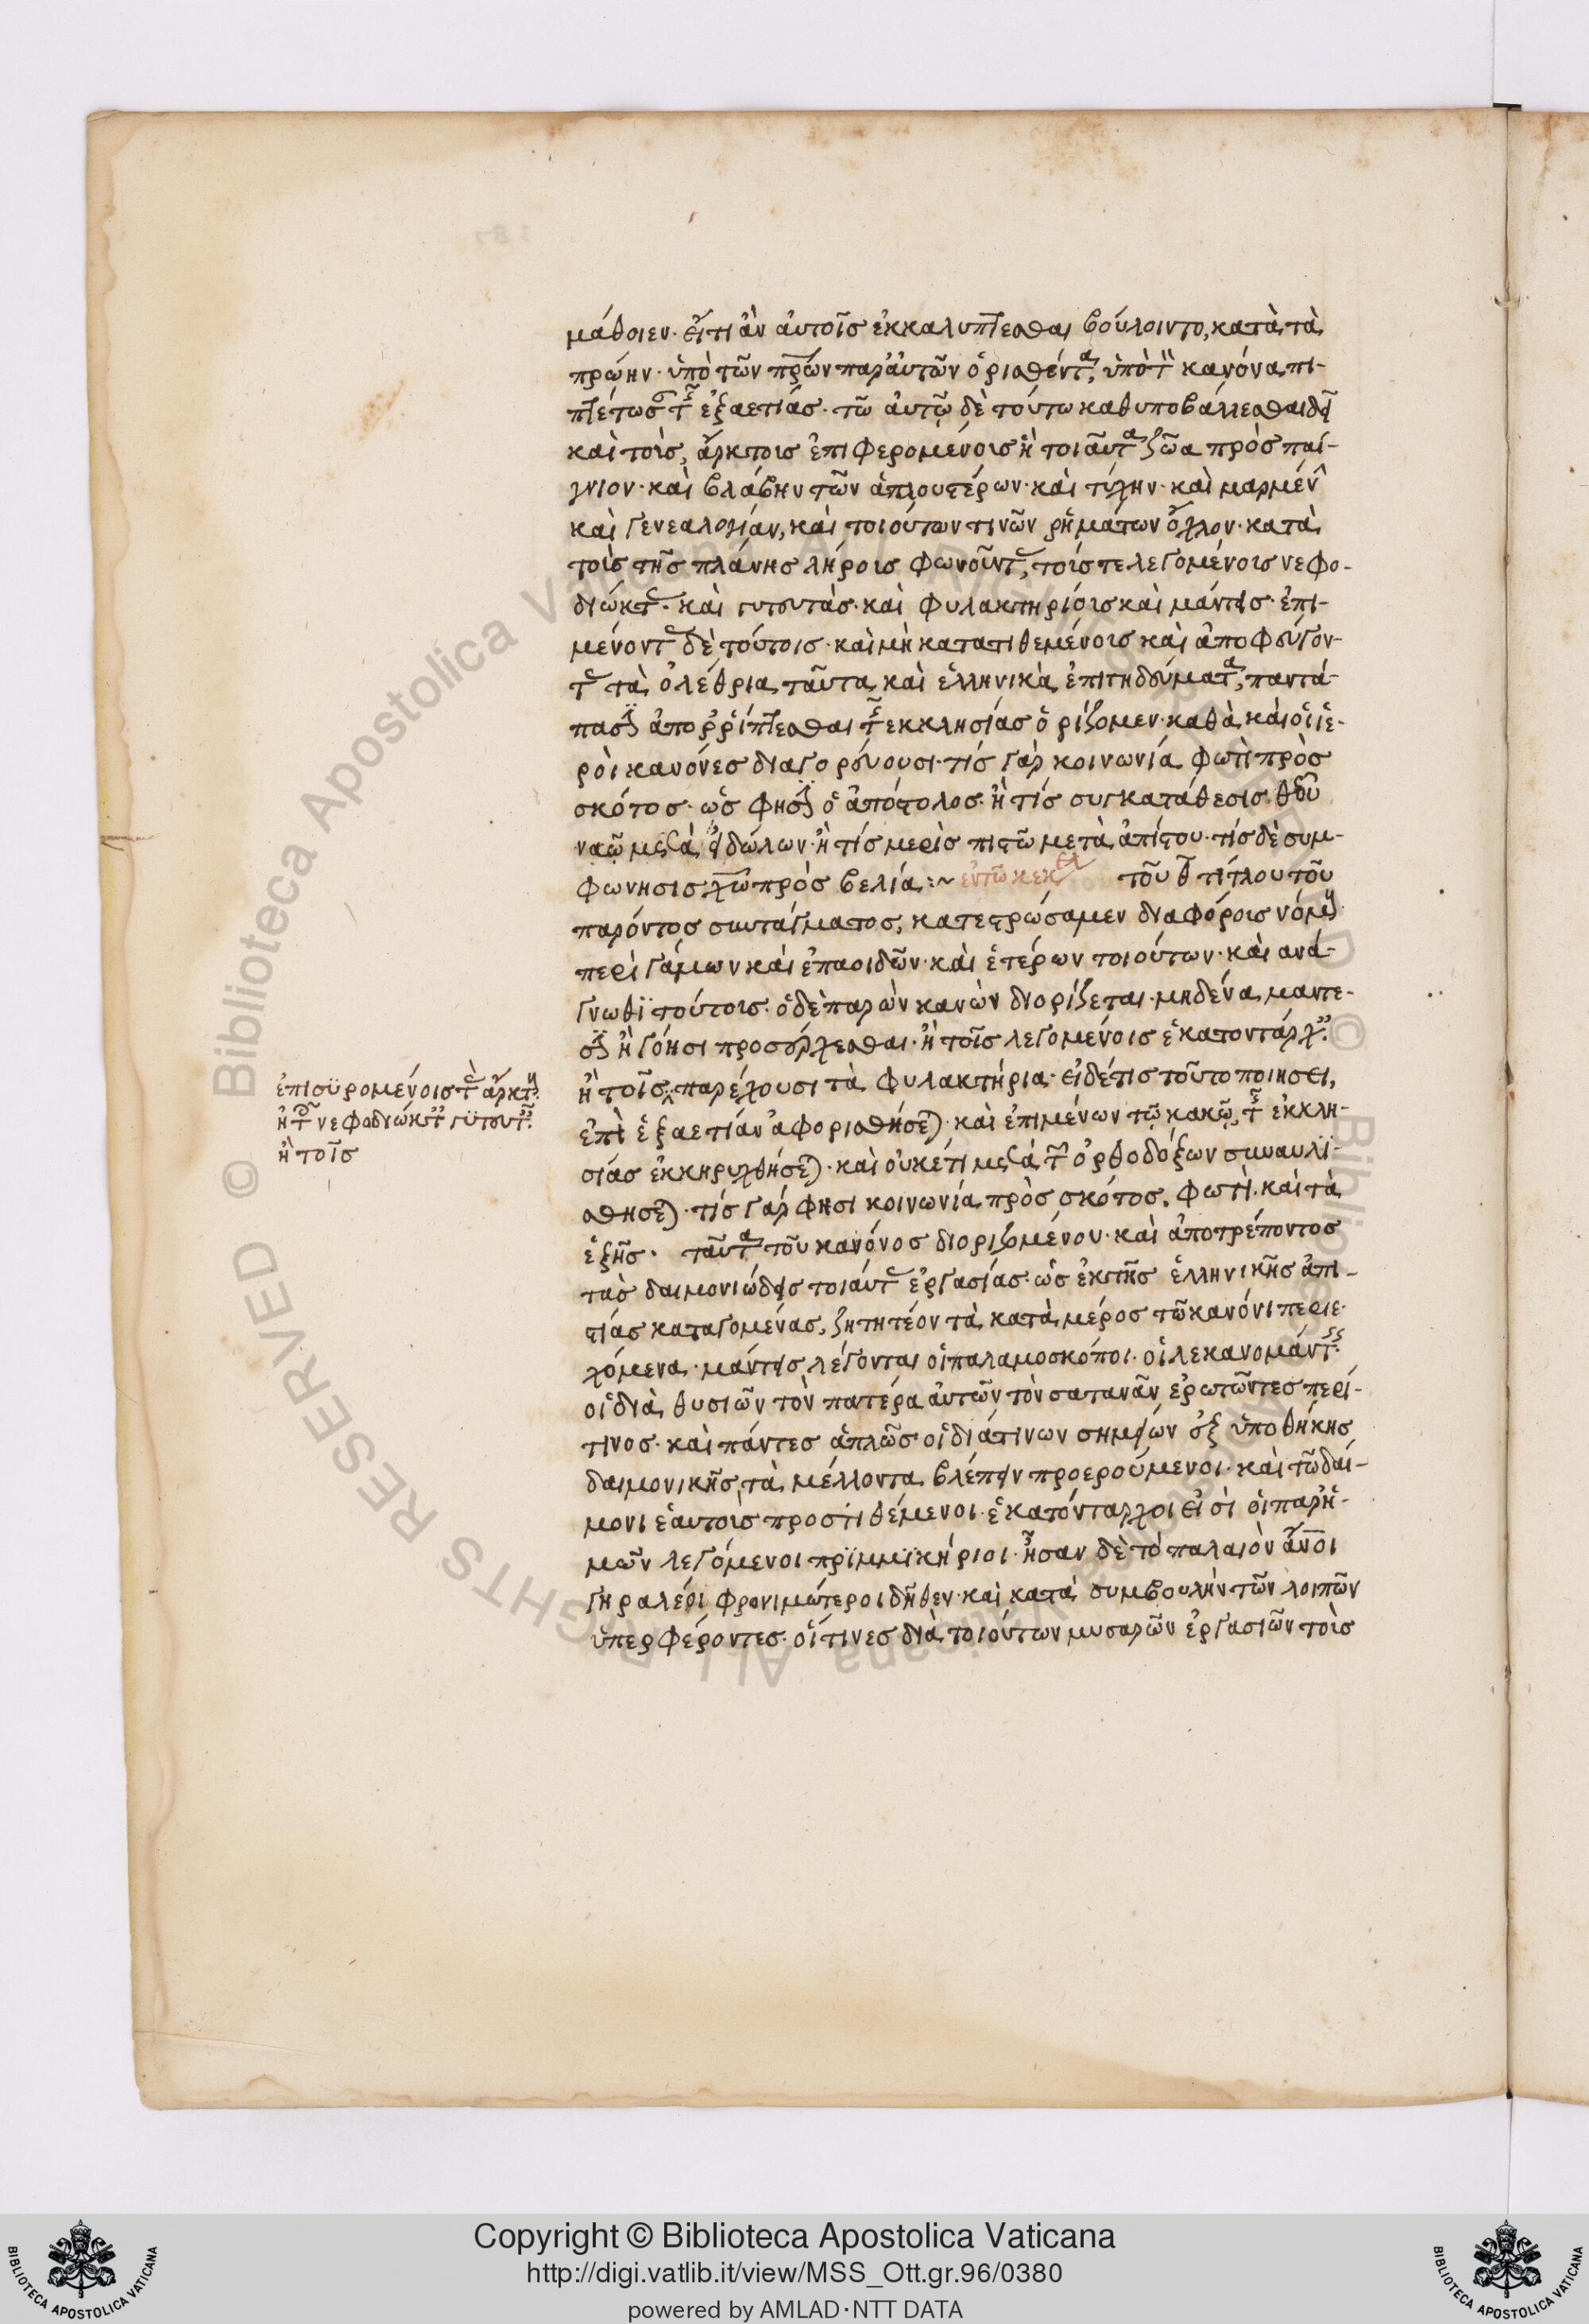 μάθοιεν· εἴτι ἂν αὐτοῖς ἐκκαλύπτεσθαι βούλοιντο, κατὰ τὰ
πρώην· ὑπὸ τῶν πρ̅ων παρ' αὐτῶν ὁρισθέντ(α), ὑπὸ τ(ὸν) κανόνα πι-
πτέτως(αν) τ(ῆς) ἑξαετίας· τῶ αὐτῷ δὲ τούτω καθυποβάλλεσθαι δεῖ
καὶ τοὺς, ἄρκτους ἐπιφερομένους ἢ τοιαῦτ(α) ζῶα πρὸς παί-
γνιον· καὶ βλάβην τῶν ἁπλουστέρων· καὶ τύχην· καὶ μαρμέν(ην)
καὶ γενεαλογίαν, καὶ τοιούτων τινῶν ῥημάτων ὄχλον· κατὰ
τοὺς τῆς πλάνης λήρους φωνοῦντ(ας), τούς τε λεγομένους νεφο-
διώκτ(ας)· καὶ γυτευτὰς· καὶ φυλακτηρίους καὶ μάντεις· ἐπι-
μένοντ(ας) δὲ τούτοις· καὶ μὴ κατατιθεμένους καὶ ἀποφεύγον-
τ(ας) τὰ ὀλέθρια ταῦτα καὶ ἑλληνικὰ ἐπιτηδεύματ(α), παντά-
πασιν ἀπορρίπτεσθαι τ(ῆς) ἐκκλησίας ὁρίζομεν· καθὰ καὶ οἱ ἱε-
ροὶ κανόνες διαγορεύουσι· τίς γὰρ κοινωνία φωτὶ πρὸς
σκότος· ὥς φησιν ὁ ἀπόστολος· ἢ τίς συγκατάθεσις θ̅υ
ναῶ μετὰ εἰδώλων· ἢ τίς μερὶς πιστῶ μετὰ ἀπίστου· τίς δὲ συμ-
φωνησις χ̅ω πρὸς βελία :~ ἐν τῶ κε κε(φ) τοῦ θ̅ τίτλου τοῦ
παρόντος συντάγματος, κατεστρώσαμεν διαφόρους νόμ(ους)
περὶ γάμων καὶ ἐπαοιδῶν· καὶ ἑτέρων τοιούτων· καὶ ανά-
γνωθϊ τούτους· ὁ δὲ παρὼν κανὼν διορίζεται· μηδένα μαντε-
σιν ἢ γόησι προσέρχεσθαι· ἢ τοῖς λεγομένοις ἑκατοντάρχ(οις)
ἢ τοῖς παρέχουσι τὰ φυλακτήρια· εἰ δέ τις τοῦτο ποιησει,
ἐπὶ ἑξαετίαν ἀφορισθήσε(ται)· καὶ ἐπιμένων τῷ κακῷ, τ(ῆς) ἐκκλη-
σίας ἐκκηρυχθήσε(ται)· καὶ οὐκέτι μετὰ τ(ῶν) ὀρθοδόξων συναυλι-
σθησε(ται)· τίς γάρ φησι κοινωνία πρὸς σκότος, φωτὶ· καὶ τὰ
ἑξῆς· ταῦτ(α) τοῦ κανόνος διοριζομένου· καὶ ἀποτρέποντος
τὰς δαιμονιώδεις τοιάυτ(ας) ἐργασίας· ὡς ἐκ τῆς ἑλληνικῆς ἀπι-
στίας καταγομένας, ζητητέον τὰ κατὰ μέρος τῶ κανόνι περιε-
χόμενα· μάντεις λέγονται οἱ παλαμοσκόποι· οἱ λεκανομάντ(εις)
οἱ διὰ θυσιῶν τὸν πατέρα αὐτῶν τὸν σατανᾶν ἐρωτῶντες περί-
τινος· καὶ πάντες ἁπλῶς οἱ διά τινων σημείων ἐξ ὑποθήκης
δαιμονικῆς, τὰ μέλλοντα βλέπειν προερούμενοι· καὶ τῶ δαί-
μονι ἑαυτοὺς προστιθέμενοι· ἑκατόνταρχοι εἰσὶ οἱ παρ' ἡ-
μῶν λεγόμενοι πρϊμμϊκήριοι· ἦσαν δὲ τὸ παλαιὸν ἄν̅οι
γηραλέοι φρονιμώτεροι δῆθεν· καὶ κατὰ συμβουλὴν τῶν λοιπῶν
ὑπερφέροντες· οἵτινες διὰ τοιούτων μυσαρῶν ἐργασιῶν τοὺς
ἐπισϋρομένοις τ(ὰς) ἄρκτ(ους)
ἢ τ(οῖς) νεφοδιώκτ(αις) γϋτευτ(αῖς)
ἢ τοῖς
© Biblioteca Apostolica Vaticana ALL RIGHTS RESERVED
Copyright © Biblioteca Apostolica Vaticana
http://digi.vatlib.it/view/MSS_Ott.gr.96/0380
powered by AMLAD·NTT DATA
BIBLIOTECA APOSTOLICA VATICANA
BIBLIOTECA APOSTOLICA VATICANA